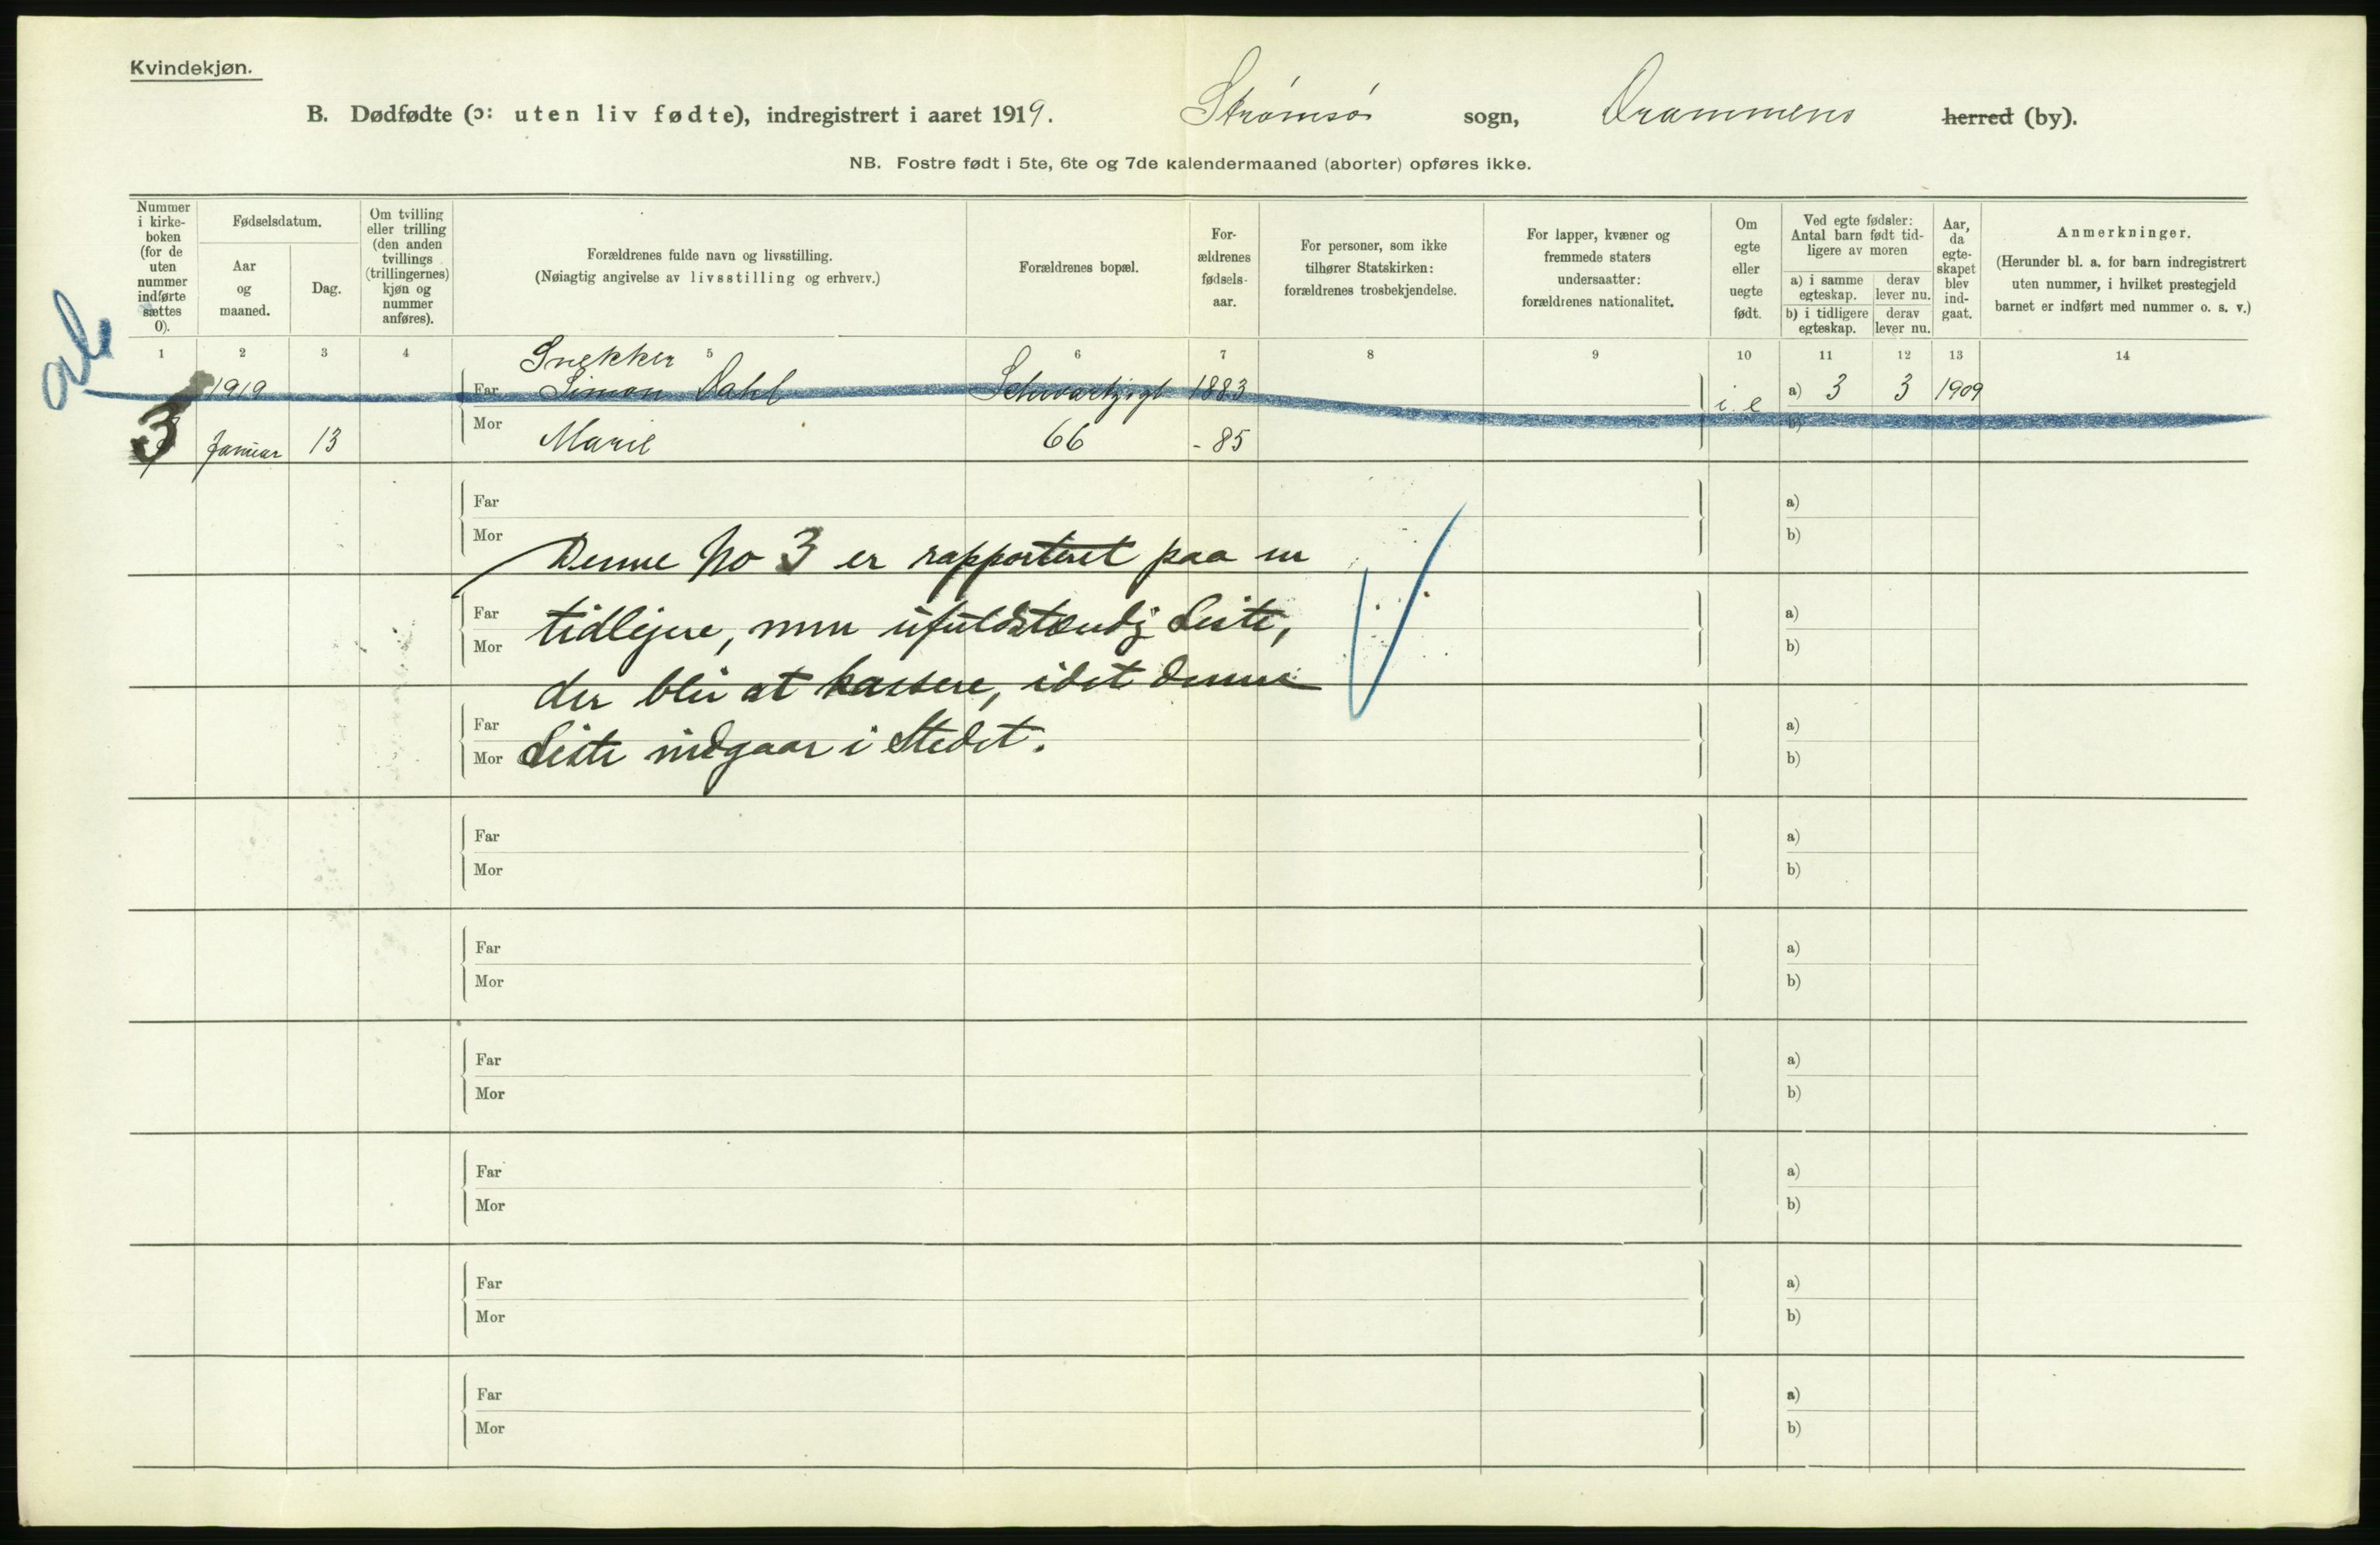 Kvindekjøn.
B. Dødfødte (ɔ: uten liv fødte), indregistrert i aaret 1919. Strømsø sogn, Drammens herred (by).
NB. Fostre født i 5te, 6te og 7de kalendermaaned (aborter) opføres ikke.
Nummer i kirke-boken (for de uten nummer indførte sættes 0).
Fødselsdatum.
Aar og maaned.
Dag.
Om tvilling eller trilling (den anden tvillings (trillingernes) kjøn og nummer anføres).
Forældrenes fulde navn og livsstilling.
(Nøiagtig angivelse av livsstilling og erhverv.)
Forældrenes bopæl.
For-ældrenes fødsels-aar.
For personer, som ikke tilhører Statskirken: forældrenes trosbekjendelse.
For lapper, kvæner og fremmede staters undersaatter: forældrenes nationalitet.
Om egte eller uegte født.
Ved egte fødsler: Antal barn født tid-ligere av moren
a) i samme egteskap. derav lever nu.
b) i tidligere egteskap. derav lever nu.
Aar, da egte-skapet blev ind-gaat.
Anmerkninger.
(Herunder bl. a. for barn indregistrert uten nummer, i hvilket prestegjeld barnet er indført med nummer o. s. v.)
1 2 3 4 5 6 7 8 9 10 11 12 13 14
Snekker
1919 Far Simon Dahl 1883 i. e a) 3 3 1909
3 Januar 13 Mor Marie 66 - 85 b)
Far a)
Mor b)
Denne No 3 er rapporteret paa en
Far a)
tidligere, men ufuldstændig Liste,
Mor b)
der blir at kassere, idet denne
Far a)
Mor Liste indgaar i Stedet. b)
Far a)
Mor b)
Far a)
Mor b)
Far a)
Mor b)
Far a)
Mor b)
Far a)
Mor b)
Far a)
Mor b)